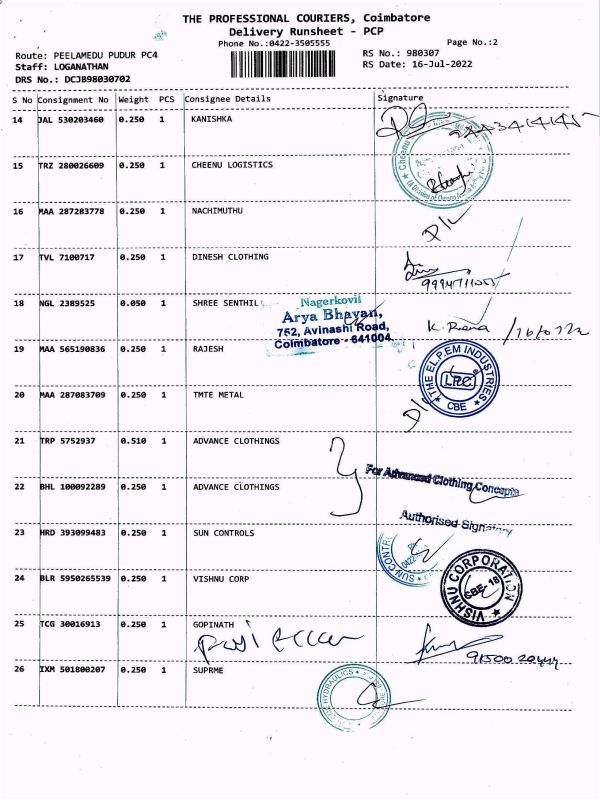 THE PROFESSIONAL COURIERS, Coimbatore
Delivery Runsheet - PCP
Phone No.:0422-3505555 Page No.:2
Route: PEELAMEDU PUDUR PC4 RS No.: 980307
Staff: LOGANATHAN RS Date: 16-Jul-2022
DRS No.: DCJ898030702
S No Consignment No Weight PCS Consignee Details Signature
14 JAL 530203460 0.250 1 KANISHKA
15 TRZ 280026609 0.250 1 CHEENU LOGISTICS
16 MAA 287283778 0.250 1 NACHIMUTHU
D/L
17 TVL 7100717 0.250 1 DINESH CLOTHING
18 NGL 2389525 0.050 1 SHREE SENTHIL
Nagerkovil
Arya Bhavan,
752, Avinashi Road,
Coimbatore - 641004.
16/07/22
19 MAA 565190836 0.250 1 RAJESH
THE EL.P.EM INDUSTRIES
CBE
20 MAA 287083709 0.250 1 TMTE METAL
D/L
21 TRP 5752937 0.510 1 ADVANCE CLOTHINGS
For Advanced Clothing Concepts
22 BHL 100092289 0.250 1 ADVANCE CLOTHINGS
Authorised Signatory
23 HRD 393099483 0.250 1 SUN CONTROLS
SUN CONTR
24 BLR 5950265539 0.250 1 VISHNU CORP
VISHNU CORPORATION
CBE-18
25 TCG 30016913 0.250 1 GOPINATH
26 IXM 501800207 0.250 1 SUPRME
HYDRAULICS